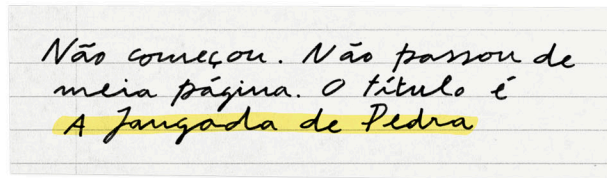 Não começou. Não passou de
meia página. O título é
A Jangada de Pedra